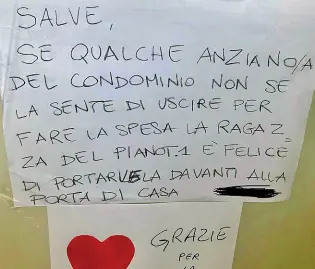 SALVE,
SE QUALCHE ANZIANO/A
DEL CONDOMINIO NON SE
LA SENTE DI USCIRE PER
FARE LA SPESA LA RAGAZ
ZA DEL PIANOT.1 È FELICE
DI PORTARVELA DAVANTI ALLA
PORTA DI CASA
GRAZIE
PER
LA